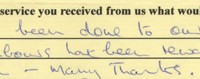 service you received from us what woul
been done to ou
has been
- Many Thanks.